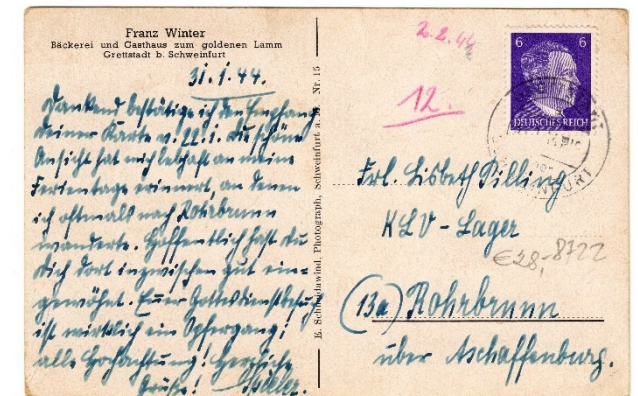 Franz Winter
Bäckerei und Gasthaus zum goldenen Lamm
Grettstadt b. Schweinfurt
31.1.44.
Dankend bestätige ich den Empfang
Deiner Karte v. 22.1. Die schöne
Ansicht hat mich lebhaft an meine
Ferientage erinnert, an denen
ich oftmals nach Rohrbrunn
wanderte. Hoffentlich hast Du
Dich dort inzwischen gut ein-
gewöhnt. Euer Gottesdienstbesuch
ist wirklich ein Opfergang;
alle Hochachtung! Herzliche
Grüße!
E. Schmidawind, Photograph, Schweinfurt a. M. Nr. 15
2.2.44
12.
6 6
DEUTSCHES REICH
Frl. Lisbeth Pilling
KLV - Lager
€28,- 8722
(13a) Rohrbrunn
über Aschaffenburg.